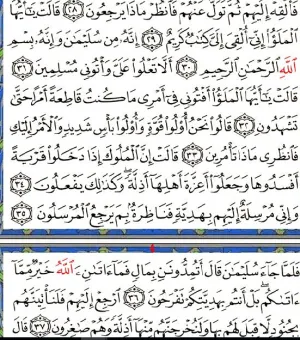 فَأَلْقِهْ إِلَيْهِمْ ثُمَّ تَوَلَّ عَنْهُمْ فَٱنظُرْ مَاذَا يَرْجِعُونَ ٢٨ قَالَتْ يَٰٓأَيُّهَا
ٱلْمَلَؤُا۟ إِنِّىٓ أُلْقِىَ إِلَىَّ كِتَٰبٌ كَرِيمٌ ٢٩ إِنَّهُۥ مِن سُلَيْمَٰنَ وَإِنَّهُۥ بِسْمِ
ٱللَّهِ ٱلرَّحْمَٰنِ ٱلرَّحِيمِ ٣٠ أَلَّا تَعْلُوا۟ عَلَىَّ وَأْتُونِى مُسْلِمِينَ ٣١
قَالَتْ يَٰٓأَيُّهَا ٱلْمَلَؤُا۟ أَفْتُونِى فِىٓ أَمْرِى مَا كُنتُ قَاطِعَةً أَمْرًا حَتَّىٰ
تَشْهَدُونِ ٣٢ قَالُوا۟ نَحْنُ أُو۟لُوا۟ قُوَّةٍ وَأُو۟لُوا۟ بَأْسٍ شَدِيدٍ وَٱلْأَمْرُ إِلَيْكِ
فَٱنظُرِى مَاذَا تَأْمُرِينَ ٣٣ قَالَتْ إِنَّ ٱلْمُلُوكَ إِذَا دَخَلُوا۟ قَرْيَةً
أَفْسَدُوهَا وَجَعَلُوٓا۟ أَعِزَّةَ أَهْلِهَآ أَذِلَّةً وَكَذَٰلِكَ يَفْعَلُونَ ٣٤
وَإِنِّى مُرْسِلَةٌ إِلَيْهِم بِهَدِيَّةٍ فَنَاظِرَةٌۢ بِمَ يَرْجِعُ ٱلْمُرْسَلُونَ ٣٥
فَلَمَّا جَآءَ سُلَيْمَٰنَ قَالَ أَتُمِدُّونَنِ بِمَالٍ فَمَآ ءَاتَىٰنِۦَ ٱللَّهُ خَيْرٌ مِّمَّآ
ءَاتَىٰكُم بَلْ أَنتُم بِهَدِيَّتِكُمْ تَفْرَحُونَ ٣٦ ٱرْجِعْ إِلَيْهِمْ فَلَنَأْتِيَنَّهُم
بِجُنُودٍ لَّا قِبَلَ لَهُم بِهَا وَلَنُخْرِجَنَّهُم مِّنْهَآ أَذِلَّةً وَهُمْ صَٰغِرُونَ ٣٧ قَالَ